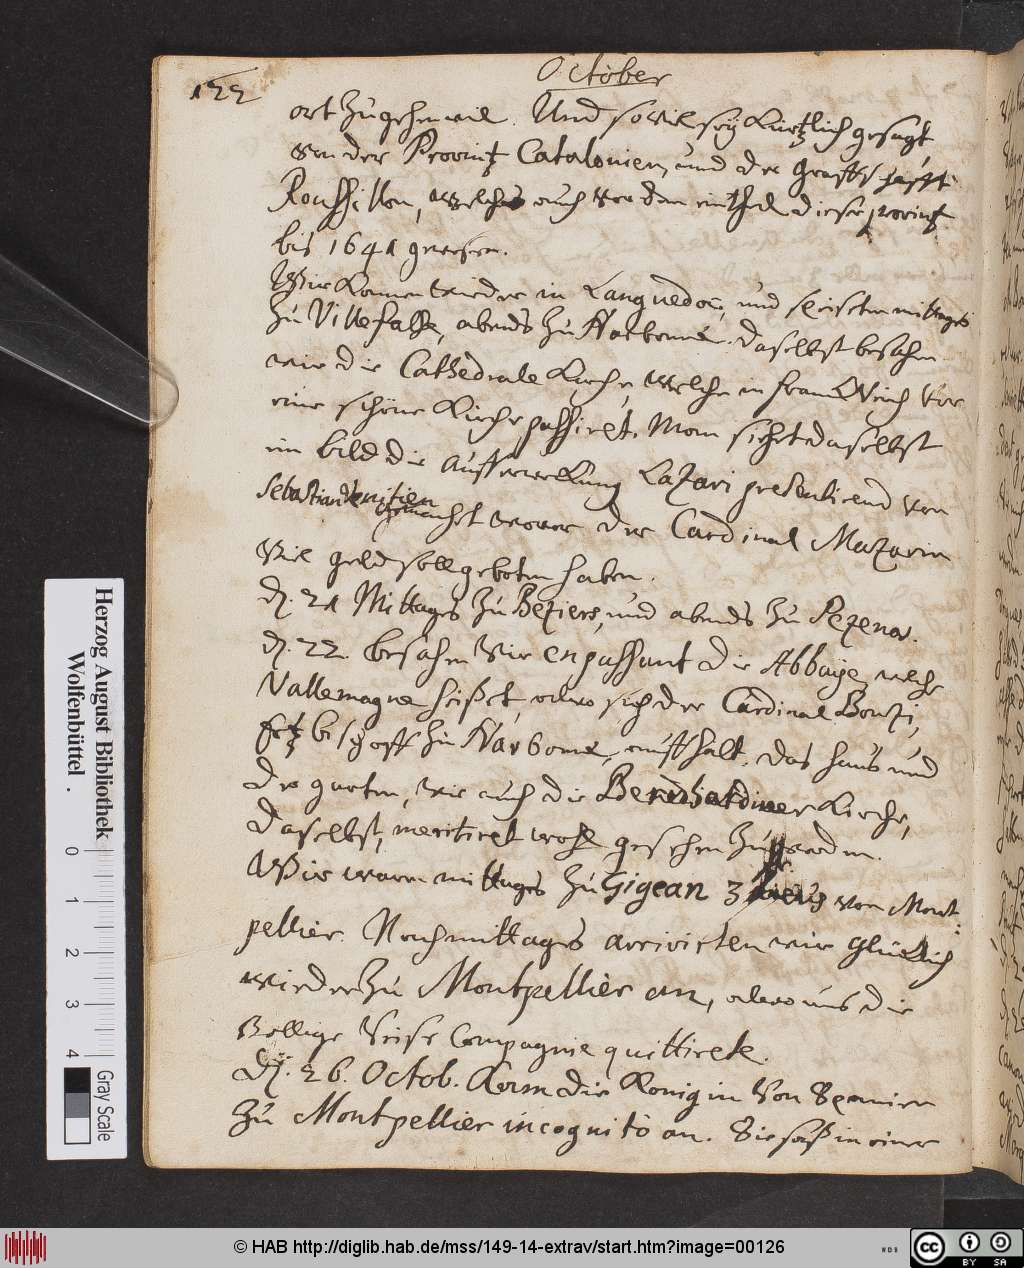 122
October
ort zu gehen wil. Und so viel sey kürtzlich gesagt
von der Provintz Catalonien, und der Graffschafft
Roussillon, welches auch vor dem ein theil dieser provintz
bis 1641 gewesen.
Wir kamen wieder in Languedoc, und speiseten mittags
zu Villefalse, abends zu Narbonne. Daselbst besahen
wir die Cathedrale Kirche, welche in Franckreich vor
eine schöne Kirche passiret. Man siehet daselbst
im bild die Aufferweckung Lazari presentirend von
Sebastian Venitien
gemacht wovor der Cardinal Mazarin
viel geld soll geboten haben.
d. 21 Mittags zu Beziers, und abends zu Pezenas.
d. 22. besahen wir en passant die Abbaye, welche
Vallemagne heisset, alwo sich der Cardinal Bonzi,
Ertzbischoff zu Narbonne, auffhalt. Das haus und
der garten, wie auch die Bernhardiner Kirche,
daselbst, meritiret wohl gesehen zu werden.
Wir waren mittags zu Gigean 3 lieues von Mont-
pellier. Nachmittages arrivirten wir glücklich
wieder zu Montpellier an, alwo uns die
vollige Reise Compagnie quittirete.
d. 26. Octob. kam die Konigin von Spanien
zu Montpellier incognito an. Sie sass in einer
Herzog August Bibliothek
Wolfenbüttel
0 1 2 3 4
Gray Scale
© HAB http://diglib.hab.de/mss/149-14-extrav/start.htm?image=00126
cc BY SA